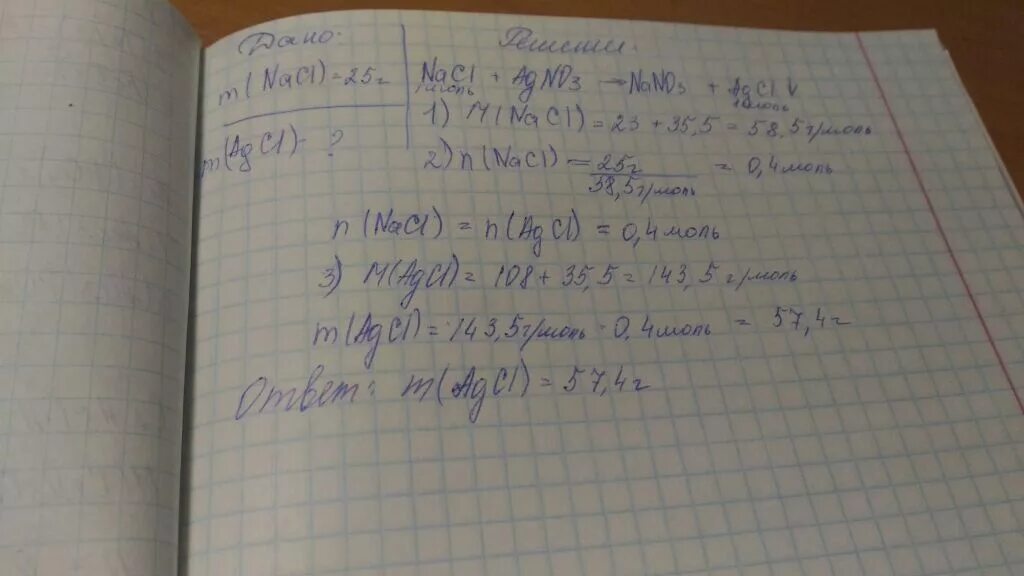 Дано:
m(NaCl)=25г
m(AgCl)-?
Решение.
NaCl + AgNO3 → NaNO3 + AgCl↓
1моль 1моль
1) M(NaCl) = 23 + 35,5 = 58,5г/моль
2) n(NaCl) = 25г / 38,5г/моль = 0,4моль
n(NaCl) = n(AgCl) = 0,4моль
3) M(AgCl) = 108 + 35,5 = 143,5 г/моль
m(AgCl) = 143,5г/моль · 0,4моль = 57,4г
Ответ: m(AgCl) = 57,4г